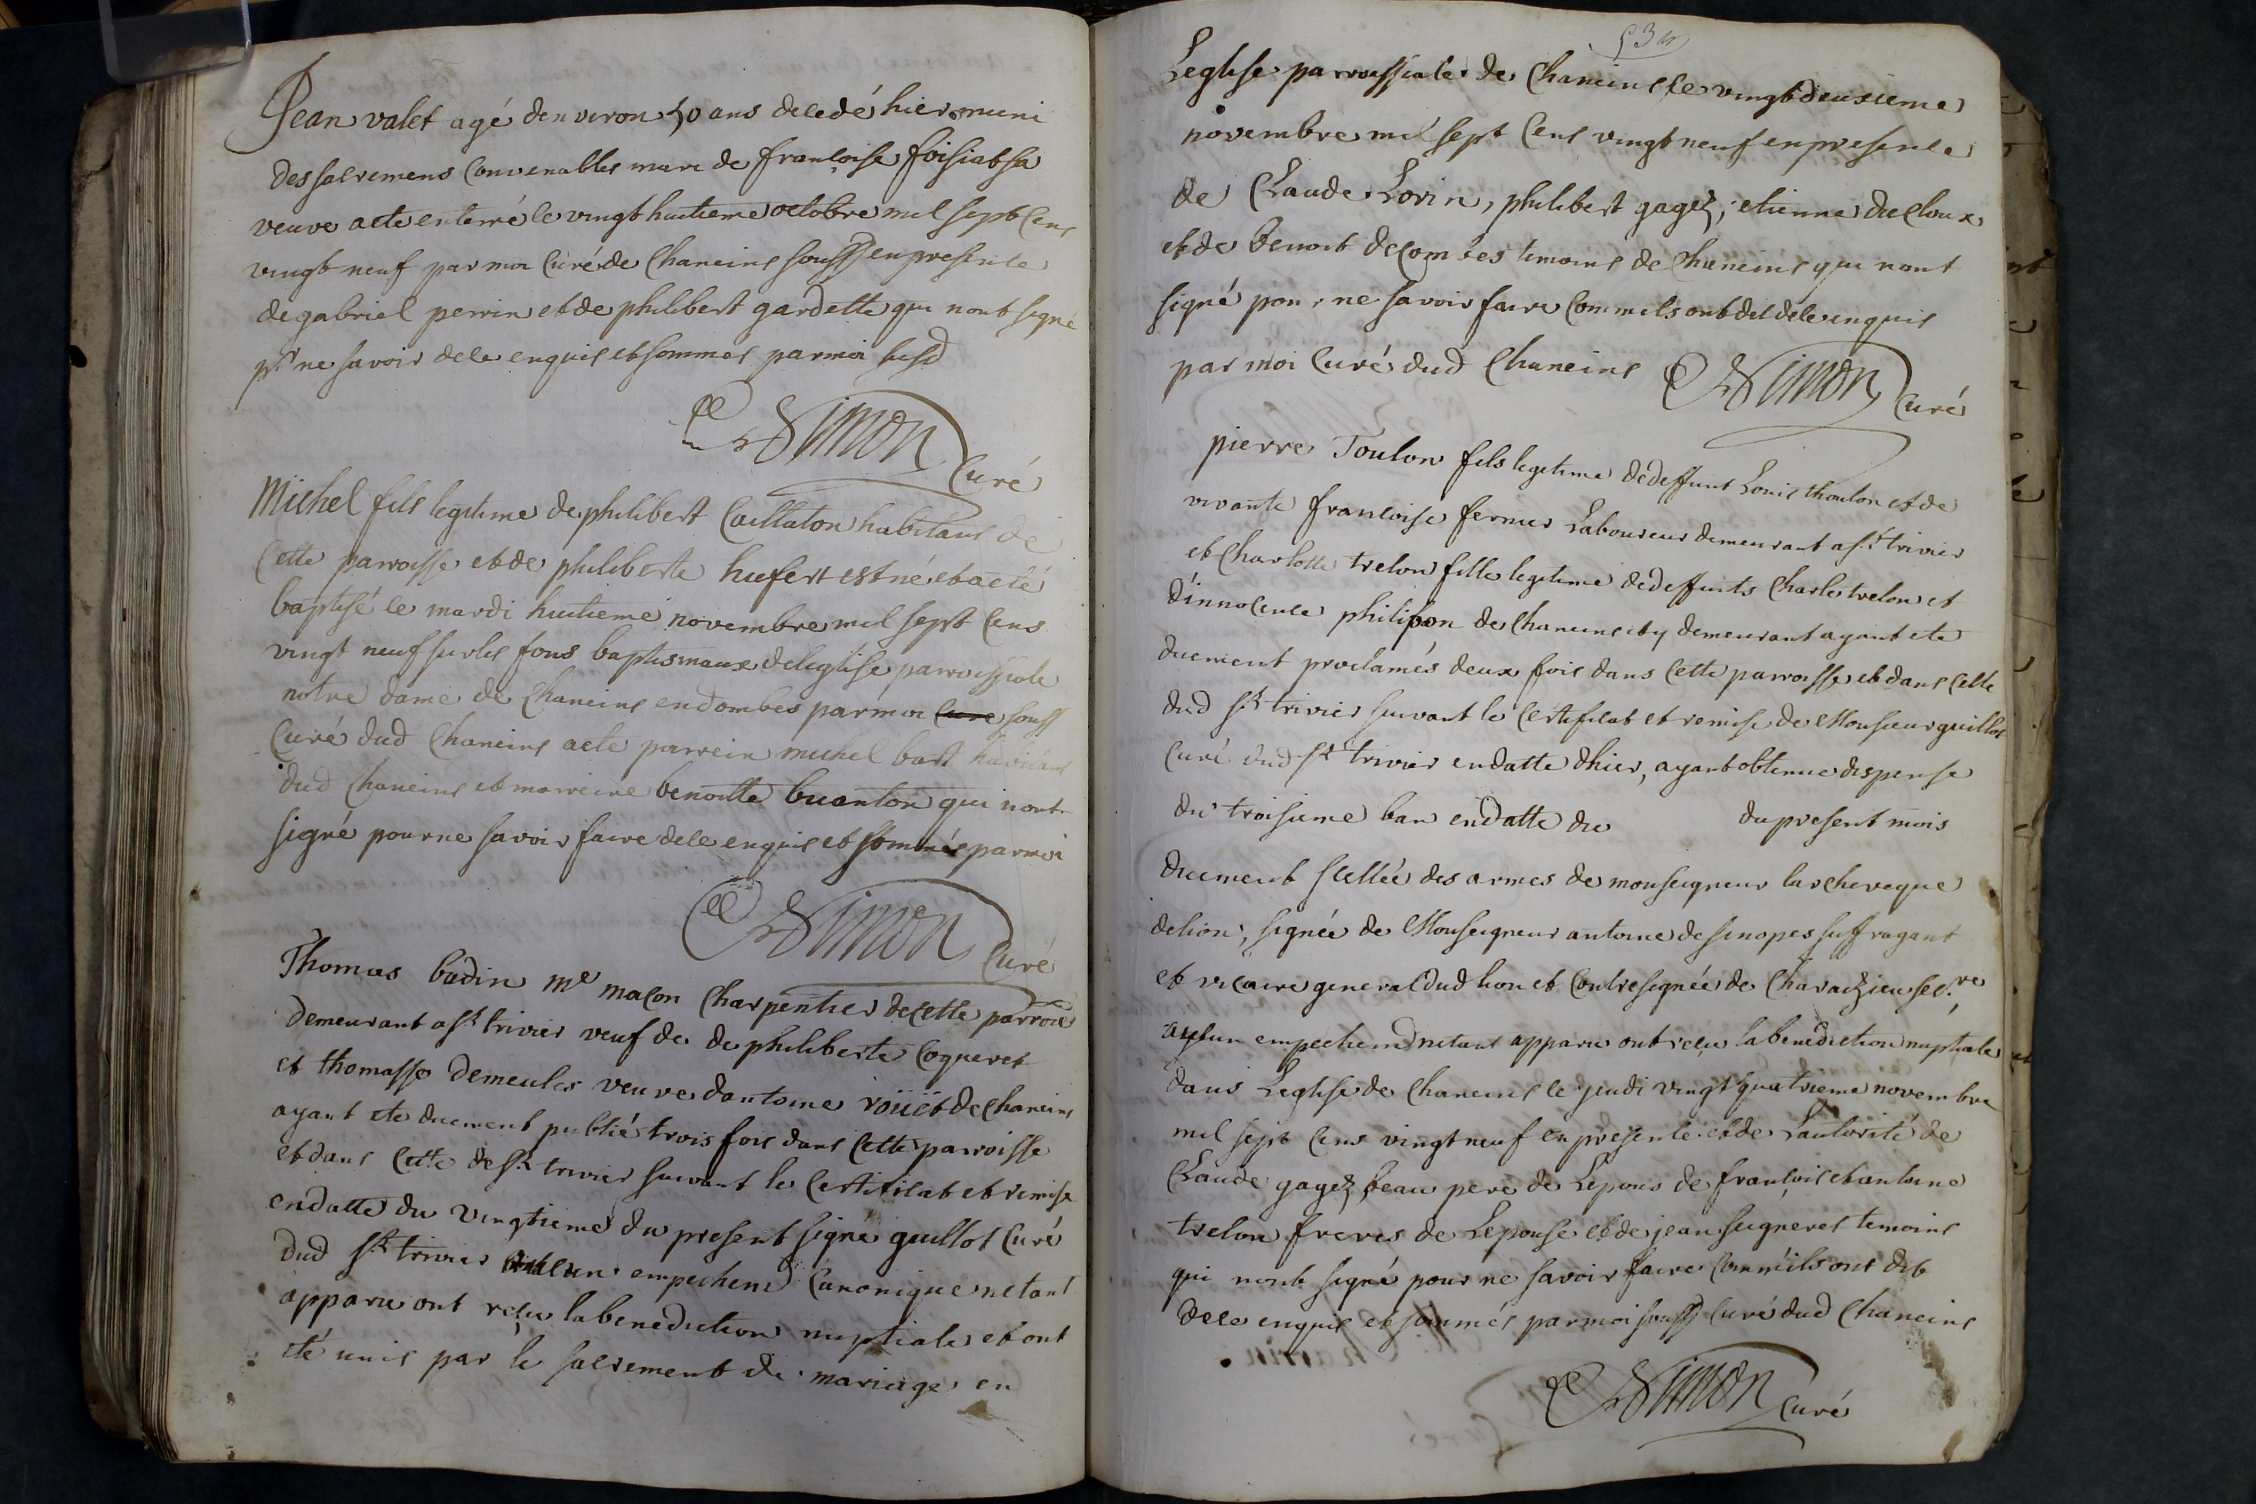 Jean valet agé denviron 50 ans decedé hier muni
des sacremens convenables mari de francoise foisiat sa
veuve a ete enterré le vingt huitieme octobre mil sept cens
vingt neuf par moi curé de Chaneins soussd en presence
de gabriel perrin et de philibert gardette qui nont signé
pr ne savoir de ce enquis et sommes par moi susd
Simon
Curé
Michel fils legitime de philibert Caillaton habitant de
Cette parroisse et de philiberte hufert est né et a eté
baptisé le mardi huitieme novembre mil sept cens
vingt neuf sur les fons baptismaux de leglise parroissiale
notre dame de Chaneins en dombes par moi souss
Curé dud Chaneins a ete parrein michel bast habitant
dud Chaneins et marreine benoitte buanton qui nont
signé pour ne savoir faire de ce enquis et sommés par moi
Simon
Curé
Thomas badin me macon Charpentier de cette parroie
demeurant a st trivier veuf de de philiberte Coqueret
et thomasse demeules veuve dantoine roüet de Chaneins
ayant ete duement publié trois fois dans cette parroisse
et dans Celle de st trivier suivant le Certificat et remise
en datte du vingtieme du present signé guillot Curé
dud st trivier aucun empechemt Canonique netant
apparu ont reçu la benediction nuptiale et ont
eté unis par le sacrement de mariage en
53
Leglise parroissiale de Chaneins le vingt deuxieme
novembre mil sept cens vingt neuf en presence
de Claude Lorin, philibert gagez, etienne ducloux
et de benoit decombes temoins de Chaneins qui nont
signé pour ne savoir faire comme ils ont dit de ce enquis
par moi Curé dud Chaneins Simon Curé
pierre Toulon fils legitime de deffunt Louis thoulon et de
vivante francoise fernier Laboureur demeurant a st trivier
et Charlotte trelon fille legitime de deffunts Charle trelon et
dinnocence philipon de Chaneins et y demeurant ayant ete
duement proclamés deux fois dans cette parroisse et dans celle
dud st trivier suivant le Certificat et remise de Monsieur guillot
Curé dud st trivier en datte dhier, ayant obtenue dispense
du troisieme ban en datte du du present mois
duement scellée des armes de monseigneur larcheveque
de lion, signée de Monseigneur antoine de sinopes suffragant
et vicaire general dud lion et Contresignée de Charaizieu secre
aucun empechemt netant apparu ont recu la benediction nuptiale
dans Leglise de Chaneins le jeudi vingt quatrieme novembre
mil sept cens vingt neuf en presence et de Lautorité de
Claude gagez beau pere de Lepoux de francois et antoine
trelon freres de Lepouse et de jean seigneret temoins
qui nont signé pour ne savoir faire comme ils ont dit
de ce enquis et sommés par moi soussd curé dud Chaneins
Simon Curé